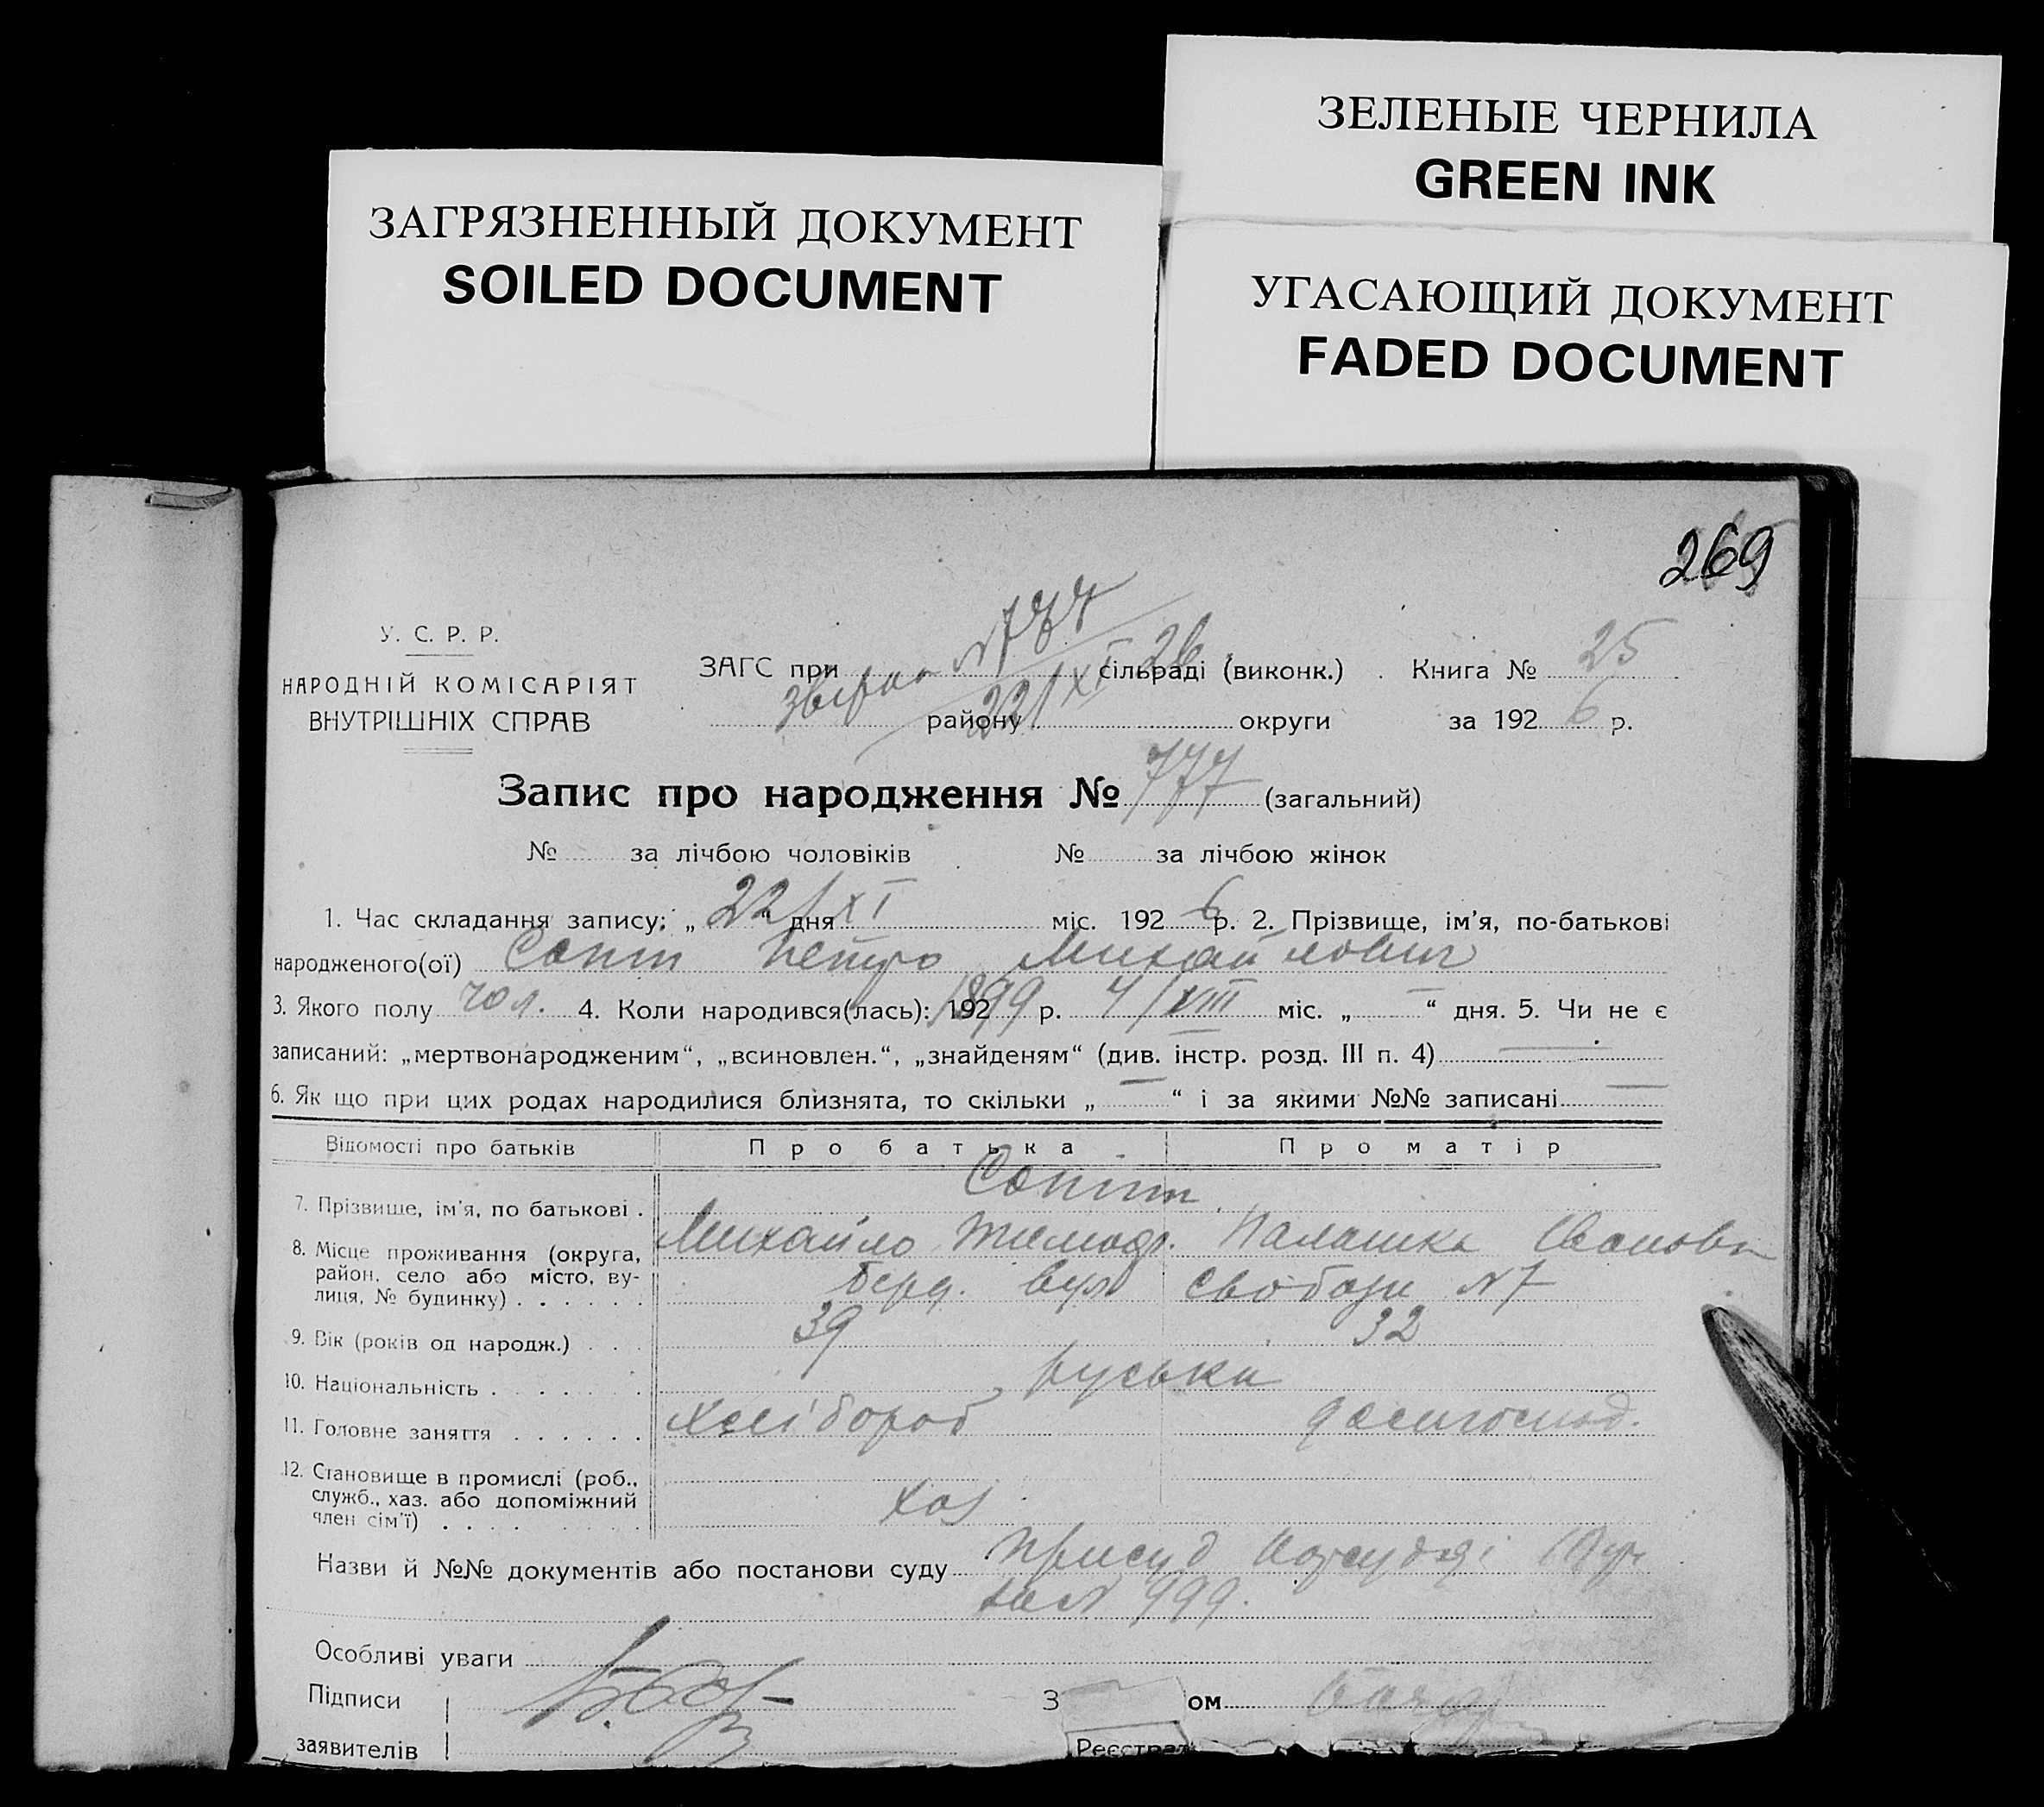 ЗЕЛЕНЫЕ ЧЕРНИЛА
GREEN INK
ЗАГРЯЗНЕННЫЙ ДОКУМЕНТ
SOILED DOCUMENT
УГАСАЮЩИЙ ДОКУМЕНТ
FADED DOCUMENT
269
У. С. Р. Р.
НАРОДНІЙ КОМІСАРІЯТ
ВНУТРІШНІХ СПРАВ
N777
22/XI 26
ЗАГС при сільраді (виконк.) Книга № 25
району округи за 1926 р.
Запис про народження № 777 (загальний)
№ за лічбою чоловіків № за лічбою жінок
1. Час складання запису: „22 дня XI міс. 1926 р. 2. Прізвище, ім'я, по-батькові
народженого(ої) Сопт Петро Михайлович
3. Якого полу чол. 4. Коли народився(лась): 1921899 р. 4/VIII міс. „ — “ дня. 5. Чи не є
записаний: „мертвонародженим“, „всиновлен.“, „знайденям“ (див. інстр. розд. III п. 4) —
6. Як що при цих родах народилися близнята, то скільки „ — “ і за якими №№ записані —
Відомості про батьків Про батька Про матір
7. Прізвище, ім'я, по батькові .
Михайло Тимоф. Палашка Іванова
8. Місце проживання (округа,
район, село або місто, ву-
лиця, № будинку) . . . . . . Берд. вул Свободи N7
9. Вік (років од народж.) . . . 39 32
10. Національність . . . . . . . руська
11. Головне заняття . . . . . . хлібороб домогоспод.
12. Становище в промислі (роб.,
служб., хаз. або допоміжний
член сім'ї) . . . . хаз
Назви й №№ документів або постанови суду Присуд Нарсудді
N 999.
Особливі уваги
Підписи
З ом
заявителів
Реєстрал